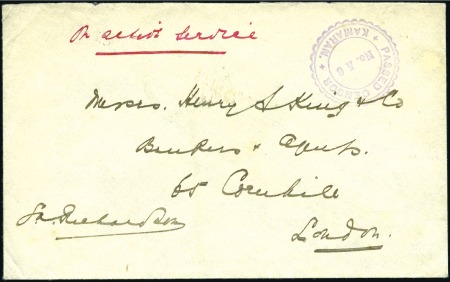 On active service
PASSED CENSOR * KAMARAN. *
No. A 6
Messrs. Henry S King & Co
Bankers & Agents.
65 Cornhill
London.
Richardson